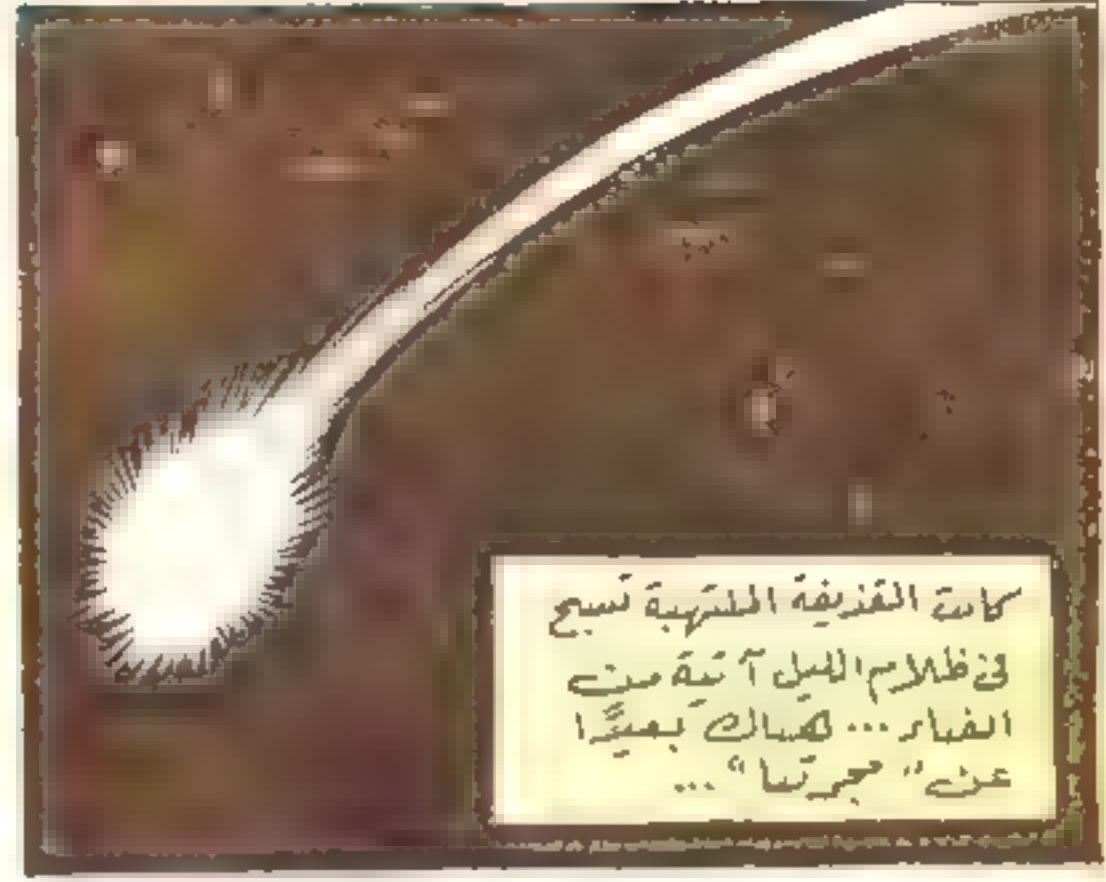 كانت القذيفة الملتهبة تسبح
في ظلام الليل آتية من
الفضاء ... هناك بعيدًا
عن "مجرتنا" ...